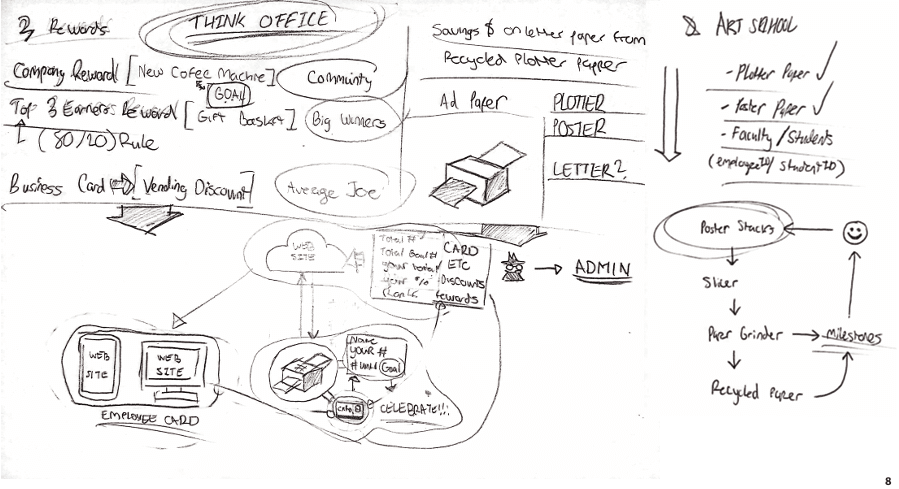 3 Rewards
THINK OFFICE
Company Reward [New Cofee Machine] Community
GOAL
Top 3 Earners Reward [Gift Basket] Big Winners
(80/20) Rule
Business Card [Vending Discount] Average Joe
Savings $ on letter paper from
Recycled Plotter Papper
Ad Paper
PLOTTER
POSTER
LETTER?
& ART SCHOOL
- Plotter Paper ✓
- Poster Paper ✓
- Faculty/Students
(employeeID/StudentID)
Poster Stacks
Slicer
Paper Grinder
Milestones
Recycled Paper
WEB
SITE
Total #
Total Goal #
your total
your %
Rank
CARD
ETC
Discounts
rewards
ADMIN
WEB
SITE
WEB
SITE
EMPLOYEE CARD
Name
YOUR #
Goal
CELEBRATE!!!
8